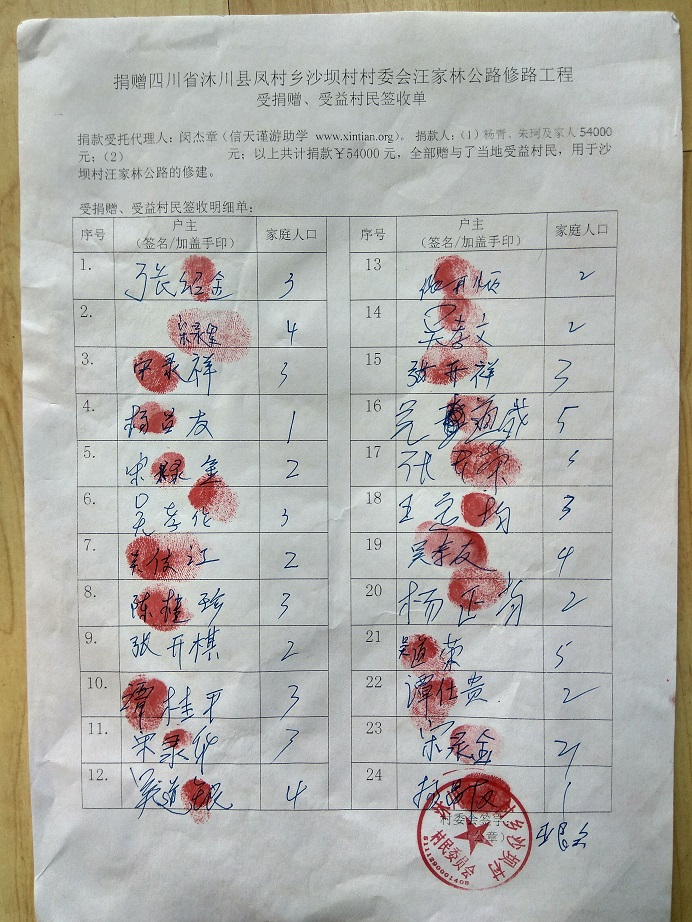 捐赠四川省沐川县凤村乡沙坝村村委会汪家林公路修路工程
受捐赠、受益村民签收单
捐款受托代理人：闵杰章（信天谨游助学 www.xintian.org）。 捐款人：（1）杨青、朱珂及家人 54000
元；（2） 元；以上共计捐款￥54000 元，全部赠与了当地受益村民，用于沙
坝村汪家林公路的修建。
受捐赠、受益村民签收明细单：
序号 户主 家庭人口 序号 户主 家庭人口
（签名/加盖手印） （签名/加盖手印）
1. 张绍金 3 13 2
2. 4 14 吴孝文 2
3. 宋录祥 3 15 张开祥 3
4. 杨 友 1 16 5
5. 宋 金 2 17 张
6. 吴孝化 3 18 王 均 3
7. 江 2 19 吴孝友 4
8. 陈桂珍 3 20 杨正 2
9. 张开棋 2 21 吴道荣 5
10. 谭桂平 3 22 谭仕贵 2
11. 宋录华 3 23 宋录金
12. 吴道 4 24
村委会签字
章）
乡沙坝村
村民委员会
5111290001408